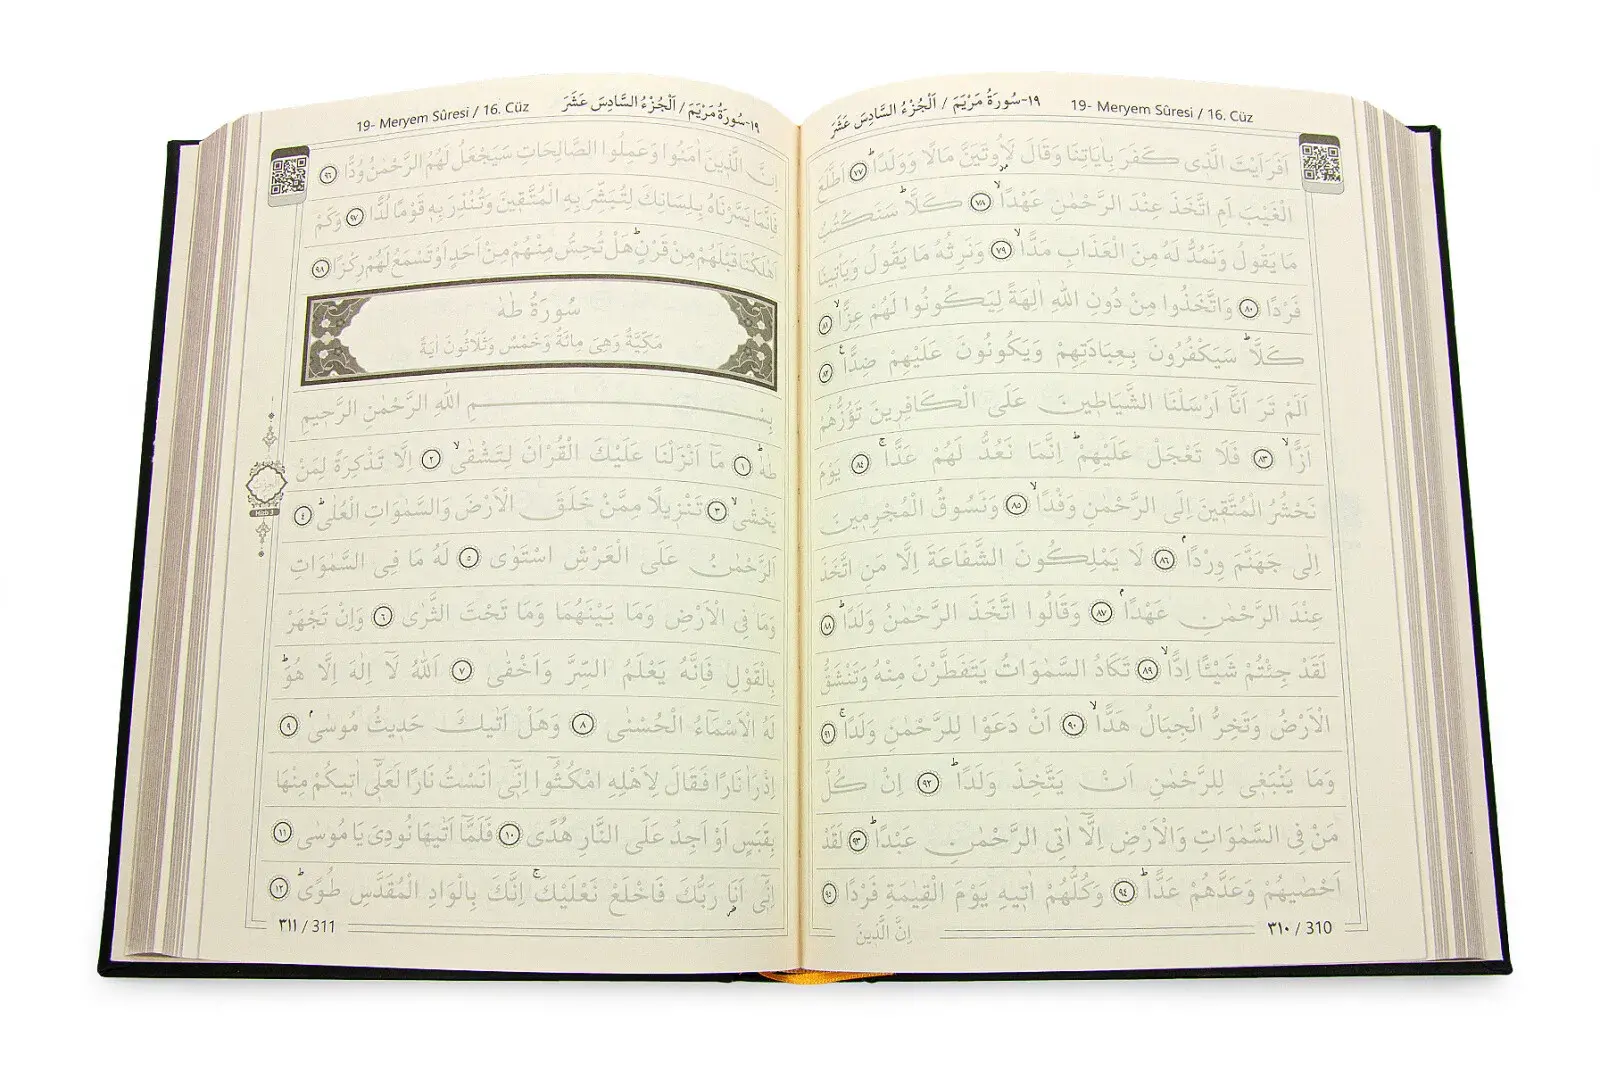 ١٩-سُورَةُ مَرْيَمَ / اَلْجُزْءُ السَّادِسَ عَشَرَ 19- Meryem Sûresi / 16. Cüz
اَفَرَاَيْتَ الَّذٖى كَفَرَ بِاٰيَاتِنَا وَقَالَ لَاُوتَيَنَّ مَالًا وَوَلَدًاؕ ﴿٧٧﴾ اَطَّلَعَ
الْغَيْبَ اَمِ اتَّخَذَ عِنْدَ الرَّحْمٰنِ عَهْدًاۙ ﴿٧٨﴾ كَلَّاؕ سَنَكْتُبُ
مَا يَقُولُ وَنَمُدُّ لَهُ مِنَ الْعَذَابِ مَدًّاۙ ﴿٧٩﴾ وَنَرِثُهُ مَا يَقُولُ وَيَاْتٖينَا
فَرْدًا ﴿٨٠﴾ وَاتَّخَذُوا مِنْ دُونِ اللّٰهِ اٰلِهَةً لِيَكُونُوا لَهُمْ عِزًّاۙ ﴿٨١﴾
كَلَّاؕ سَيَكْفُرُونَ بِعِبَادَتِهِمْ وَيَكُونُونَ عَلَيْهِمْ ضِدًّاࣖ ﴿٨٢﴾
اَلَمْ تَرَ اَنَّٓا اَرْسَلْنَا الشَّيَاطٖينَ عَلَى الْكَافِرٖينَ تَؤُزُّهُمْ
اَزًّاۙ ﴿٨٣﴾ فَلَا تَعْجَلْ عَلَيْهِمْؕ اِنَّمَا نَعُدُّ لَهُمْ عَدًّاۚ ﴿٨٤﴾ يَوْمَ
نَحْشُرُ الْمُتَّقٖينَ اِلَى الرَّحْمٰنِ وَفْدًاۙ ﴿٨٥﴾ وَنَسُوقُ الْمُجْرِمٖينَ
اِلٰى جَهَنَّمَ وِرْدًاۢ ﴿٨٦﴾ لَا يَمْلِكُونَ الشَّفَاعَةَ اِلَّا مَنِ اتَّخَذَ
عِنْدَ الرَّحْمٰنِ عَهْدًاۢ ﴿٨٧﴾ وَقَالُوا اتَّخَذَ الرَّحْمٰنُ وَلَدًاؕ ﴿٨٨﴾
لَقَدْ جِئْتُمْ شَيْـًٔا اِدًّاۙ ﴿٨٩﴾ تَكَادُ السَّمٰوَاتُ يَتَفَطَّرْنَ مِنْهُ وَتَنْشَقُّ
الْاَرْضُ وَتَخِرُّ الْجِبَالُ هَدًّاۙ ﴿٩٠﴾ اَنْ دَعَوْا لِلرَّحْمٰنِ وَلَدًاۚ ﴿٩١﴾
وَمَا يَنْبَغٖى لِلرَّحْمٰنِ اَنْ يَتَّخِذَ وَلَدًاؕ ﴿٩٢﴾ اِنْ كُلُّ
مَنْ فِى السَّمٰوَاتِ وَالْاَرْضِ اِلَّٓا اٰتِى الرَّحْمٰنِ عَبْدًاؕ ﴿٩٣﴾ لَقَدْ
اَحْصٰيهُمْ وَعَدَّهُمْ عَدًّاؕ ﴿٩٤﴾ وَكُلُّهُمْ اٰتٖيهِ يَوْمَ الْقِيٰمَةِ فَرْدًا ﴿٩٥﴾
اِنَّ الَّذٖينَ
٣١٠ / 310
19- Meryem Sûresi / 16. Cüz ١٩-سُورَةُ مَرْيَمَ / اَلْجُزْءُ السَّادِسَ عَشَرَ
اِنَّ الَّذٖينَ اٰمَنُوا وَعَمِلُوا الصَّالِحَاتِ سَيَجْعَلُ لَهُمُ الرَّحْمٰنُ وُدًّا ﴿٩٦﴾
فَاِنَّمَا يَسَّرْنَاهُ بِلِسَانِكَ لِتُبَشِّرَ بِهِ الْمُتَّقٖينَ وَتُنْذِرَ بِهٖ قَوْمًا لُدًّا ﴿٩٧﴾ وَكَمْ
اَهْلَكْنَا قَبْلَهُمْ مِنْ قَرْنٍؕ هَلْ تُحِسُّ مِنْهُمْ مِنْ اَحَدٍ اَوْ تَسْمَعُ لَهُمْ رِكْزًا ﴿٩٨﴾
سُورَةُ طٰهٰ
مَكِّيَّةٌ وَهِىَ مِائَةٌ وَخَمْسٌ وَثَلَاثُونَ اٰيَةً
بِسْمِ اللّٰهِ الرَّحْمٰنِ الرَّحٖيمِ
طٰهٰؕ ﴿١﴾ مَٓا اَنْزَلْنَا عَلَيْكَ الْقُرْاٰنَ لِتَشْقٰىۙ ﴿٢﴾ اِلَّا تَذْكِرَةً لِمَنْ
يَخْشٰىۙ ﴿٣﴾ تَنْزٖيلًا مِمَّنْ خَلَقَ الْاَرْضَ وَالسَّمٰوَاتِ الْعُلٰىؕ ﴿٤﴾
اَلرَّحْمٰنُ عَلَى الْعَرْشِ اسْتَوٰى ﴿٥﴾ لَهُ مَا فِى السَّمٰوَاتِ
وَمَا فِى الْاَرْضِ وَمَا بَيْنَهُمَا وَمَا تَحْتَ الثَّرٰى ﴿٦﴾ وَاِنْ تَجْهَرْ
بِالْقَوْلِ فَاِنَّهُ يَعْلَمُ السِّرَّ وَاَخْفٰى ﴿٧﴾ اَللّٰهُ لَٓا اِلٰهَ اِلَّا هُوَؕ
لَهُ الْاَسْمَٓاءُ الْحُسْنٰى ﴿٨﴾ وَهَلْ اَتٰيكَ حَدٖيثُ مُوسٰىۢ ﴿٩﴾
اِذْ رَاٰ نَارًا فَقَالَ لِاَهْلِهِ امْكُثُٓوا اِنّٖٓى اٰنَسْتُ نَارًا لَعَلّٖٓى اٰتٖيكُمْ مِنْهَا
بِقَبَسٍ اَوْ اَجِدُ عَلَى النَّارِ هُدًى ﴿١٠﴾ فَلَمَّٓا اَتٰيهَا نُودِىَ يَا مُوسٰى ﴿١١﴾
اِنّٖٓى اَنَا رَبُّكَ فَاخْلَعْ نَعْلَيْكَۚ اِنَّكَ بِالْوَادِ الْمُقَدَّسِ طُوًىؕ ﴿١٢﴾
Hizb 3
٣١١ / 311